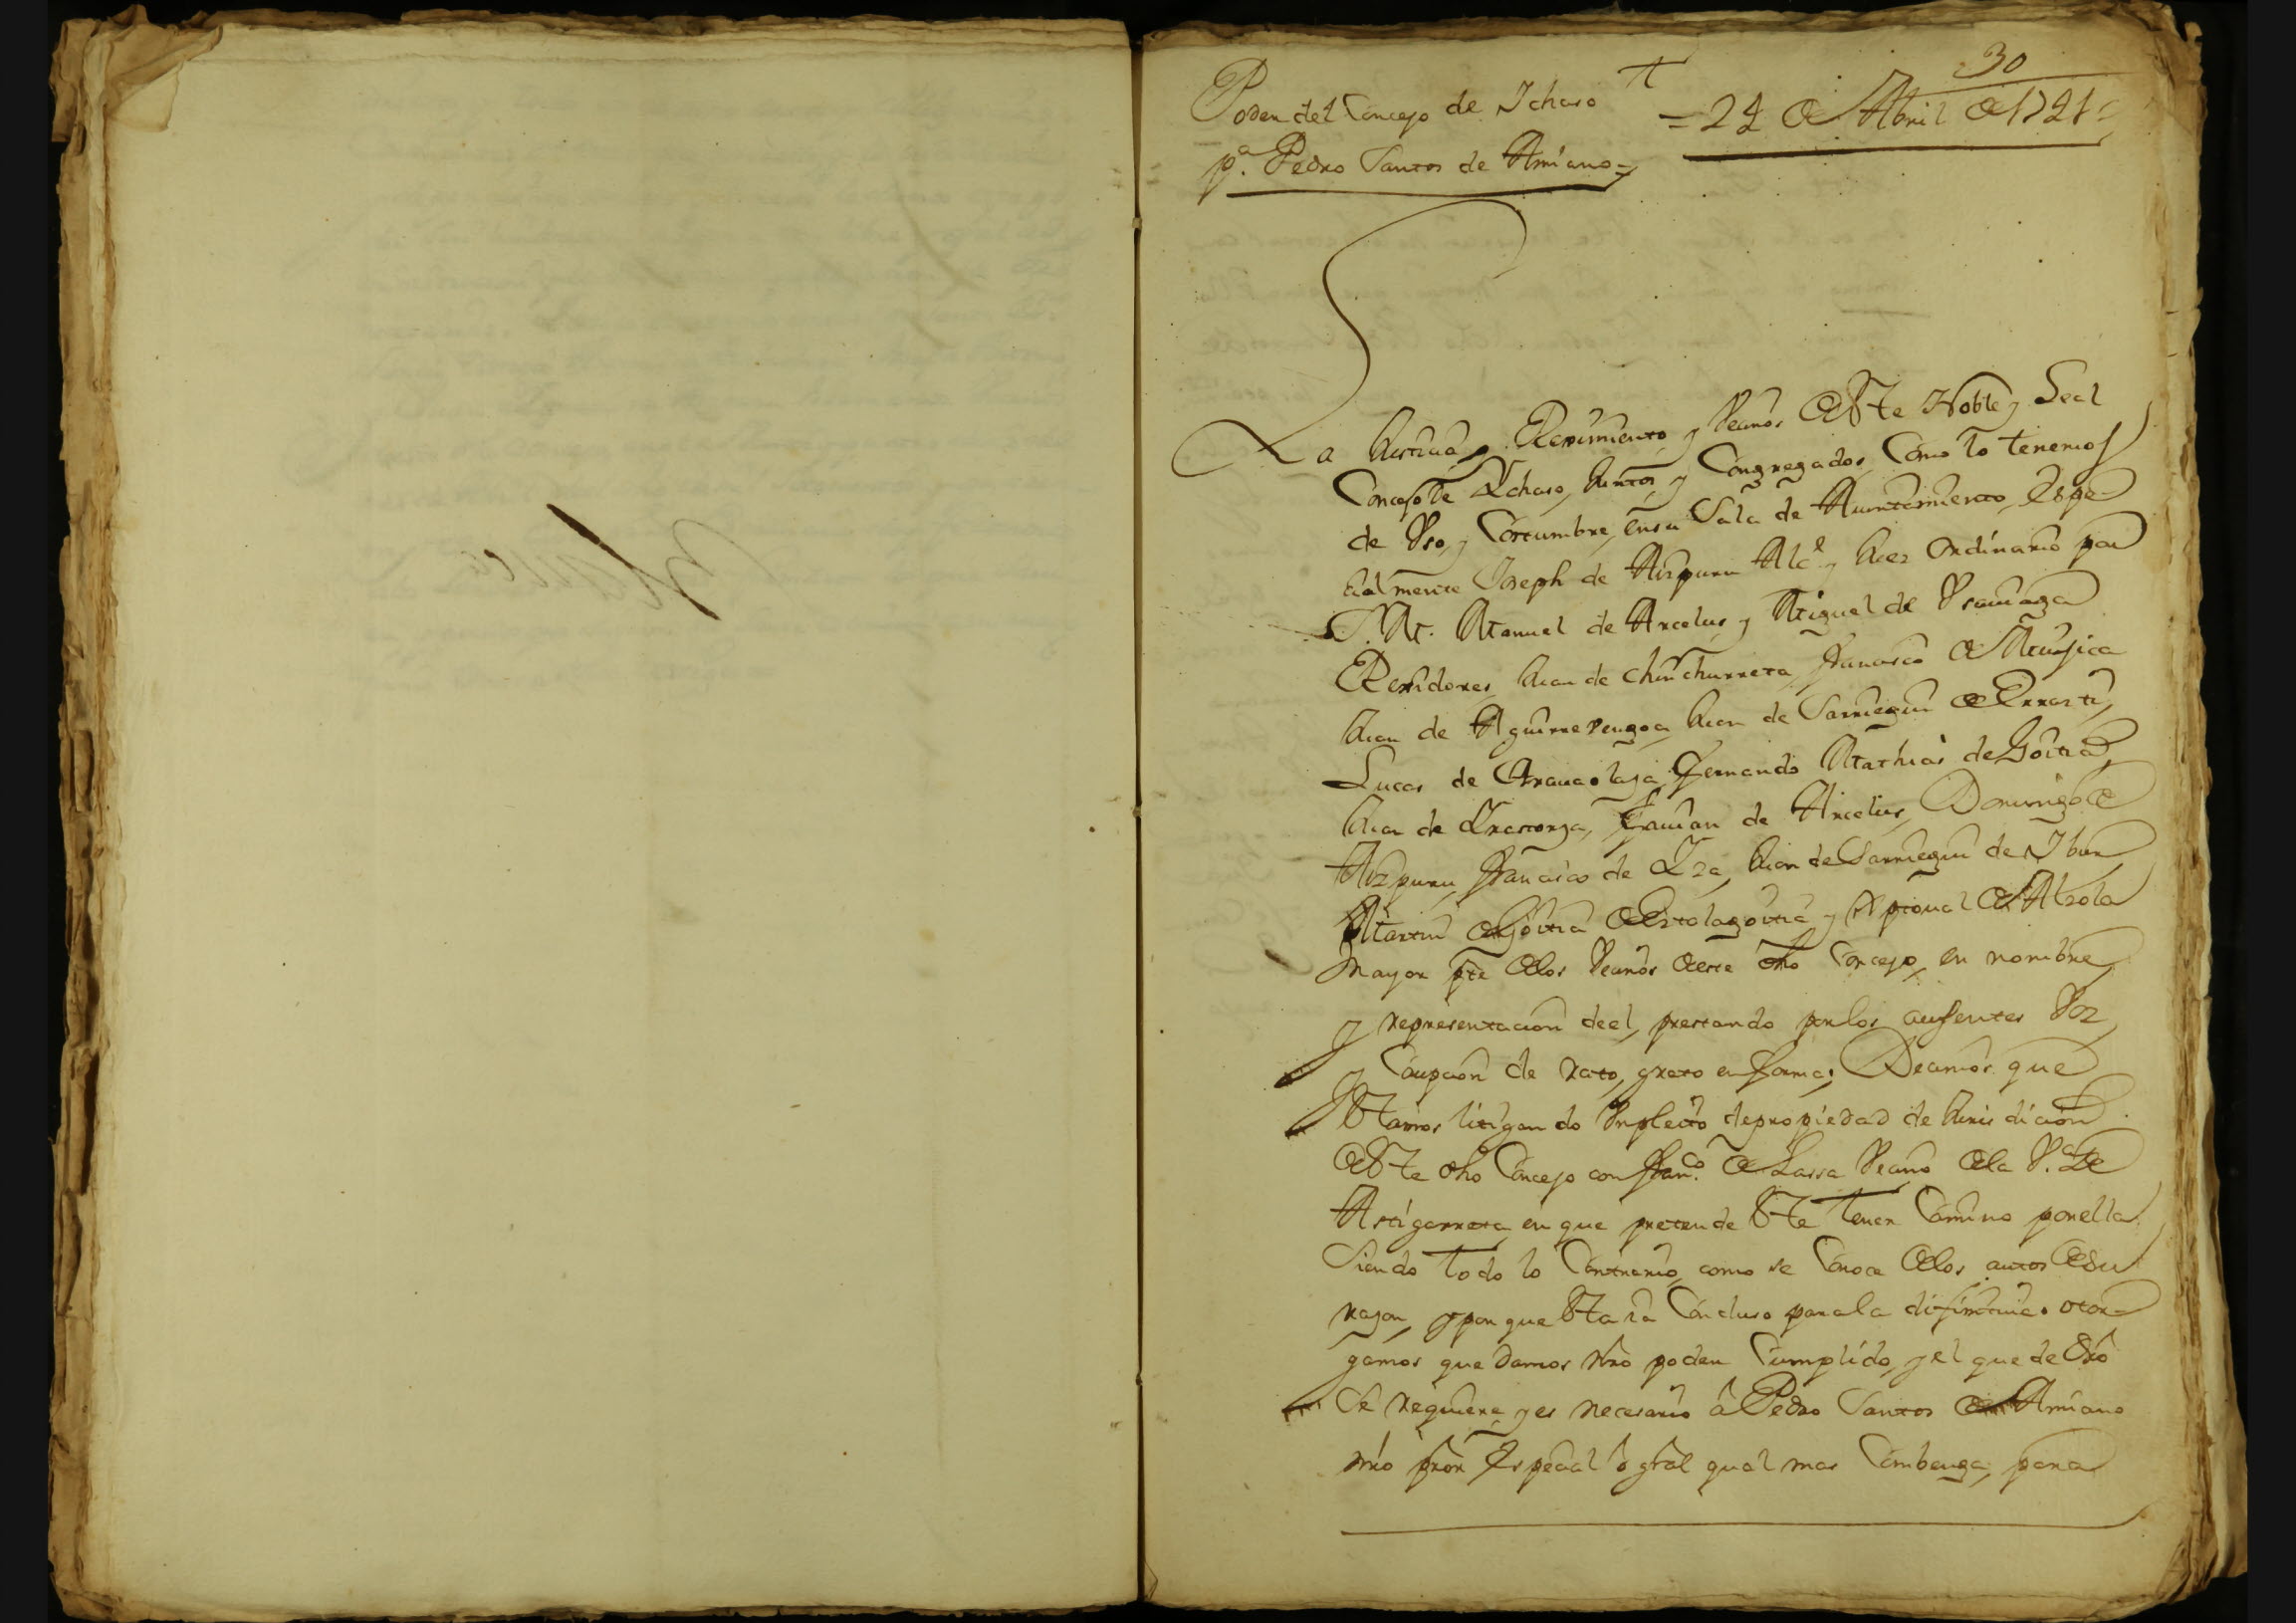 30
Poder del Concejo de Ichaso
pª. Pedro Santos de Amiano =
= 24 de Abril de 1741 =
La Justicia, y Reximiento, y Vecinos de este Noble y Leal
Concejo de Ychaso, Juntos, y Congregados, Como lo tenemos
de Vso, y Costumbre, en su Sala de Aiuntamiento, Espe-
cialmente Joseph de Aizpuru Alc.e y Juez Ordinario por
S. M. Manuel de Arcelus, y Miguel de Vsauiaga
Rexidores, Juan de Chinchurreta, Francisco de Mujica
Juan de Aguirrevengoa, Juan de Sarriegui de Errasti,
Lucas de Aranaolaza, Fernando Mathias de Goitia,
Juan de Yrastorza, Damian de Arcelus, Domingo de
Aizpuru, Francisco de Yza, Juan de Sarriegui de Ibur
Martin de Goitia de Estalagoitia, y de Alzola
Mayor pte de los Vecinos de este dho Concejo, en nombre
y representacion de el, prestando por los ausentes Voz
y Caupcion de rato, grato en forma; Decimos que
Estamos litigando Vn pleito de propiedad de Jurisdicion
de este dho Concejo con Franco. de Lassa Vecino de la V.ª de
Astigarreta, en que pretende Este tener Camino por ella,
Siendo todo lo Contrario, como se Conoce de los autos de su
razon, y por que Esta ia Concluso para la difinitiua. otor-
gamos que damos nro poder Cumplido, y el que de dro
Se requiere, y es necesario â Pedro Santos de Amiano
nro pror Especial ô gral qual mas Combenga, para